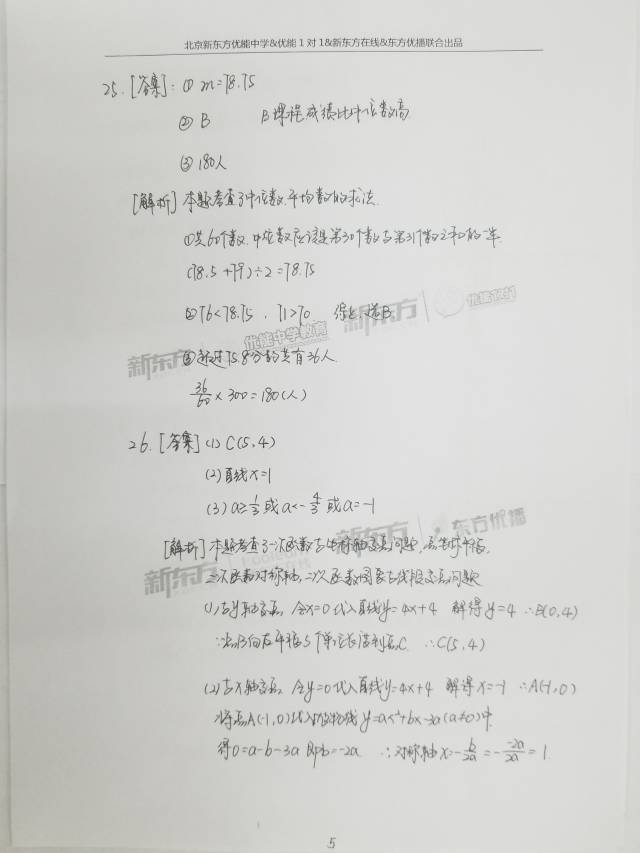 北京新东方优能中学&优能1对1&新东方在线&东方优播联合出品
25. [答案]: ① m=78.75
② B B课程成绩比中位数高
③ 180人
[解析] 本题考查了中位数、平均数的求法.
①共60个数, 中位数应该是第30个数与第31个数之和的一半.
(78.5+79)÷2=78.75
②76<78.75, 71>70 得出,选B
③超过75.8分的共有36人.
36/60 × 300=180(人)
26. [答案] (1) C(5,4)
(2) 直线x=1
(3) a≥1/3 或 a<-4/3 或 a=-1
[解析] 本题考查了一次函数与坐标轴交点问题, 点坐标平移,
二次函数对称轴, 二次函数图象与线段交点问题
(1) 与y轴交点, 令x=0代入直线y=4x+4 解得y=4 ∴B(0,4)
∵点B向右平移5个单位长得到点C ∴C(5,4)
(2) 与x轴交点, 令y=0代入直线y=4x+4 解得x=-1 ∴A(-1,0)
将点A(-1,0)代入抛物线 y=ax²+bx-3a(a≠0)中
得0=a-b-3a 即b=-2a ∴对称轴x=-b/2a=--2a/2a=1
新东方 优能中学教育 新东方 优能1对1
新东方 东方优播
5